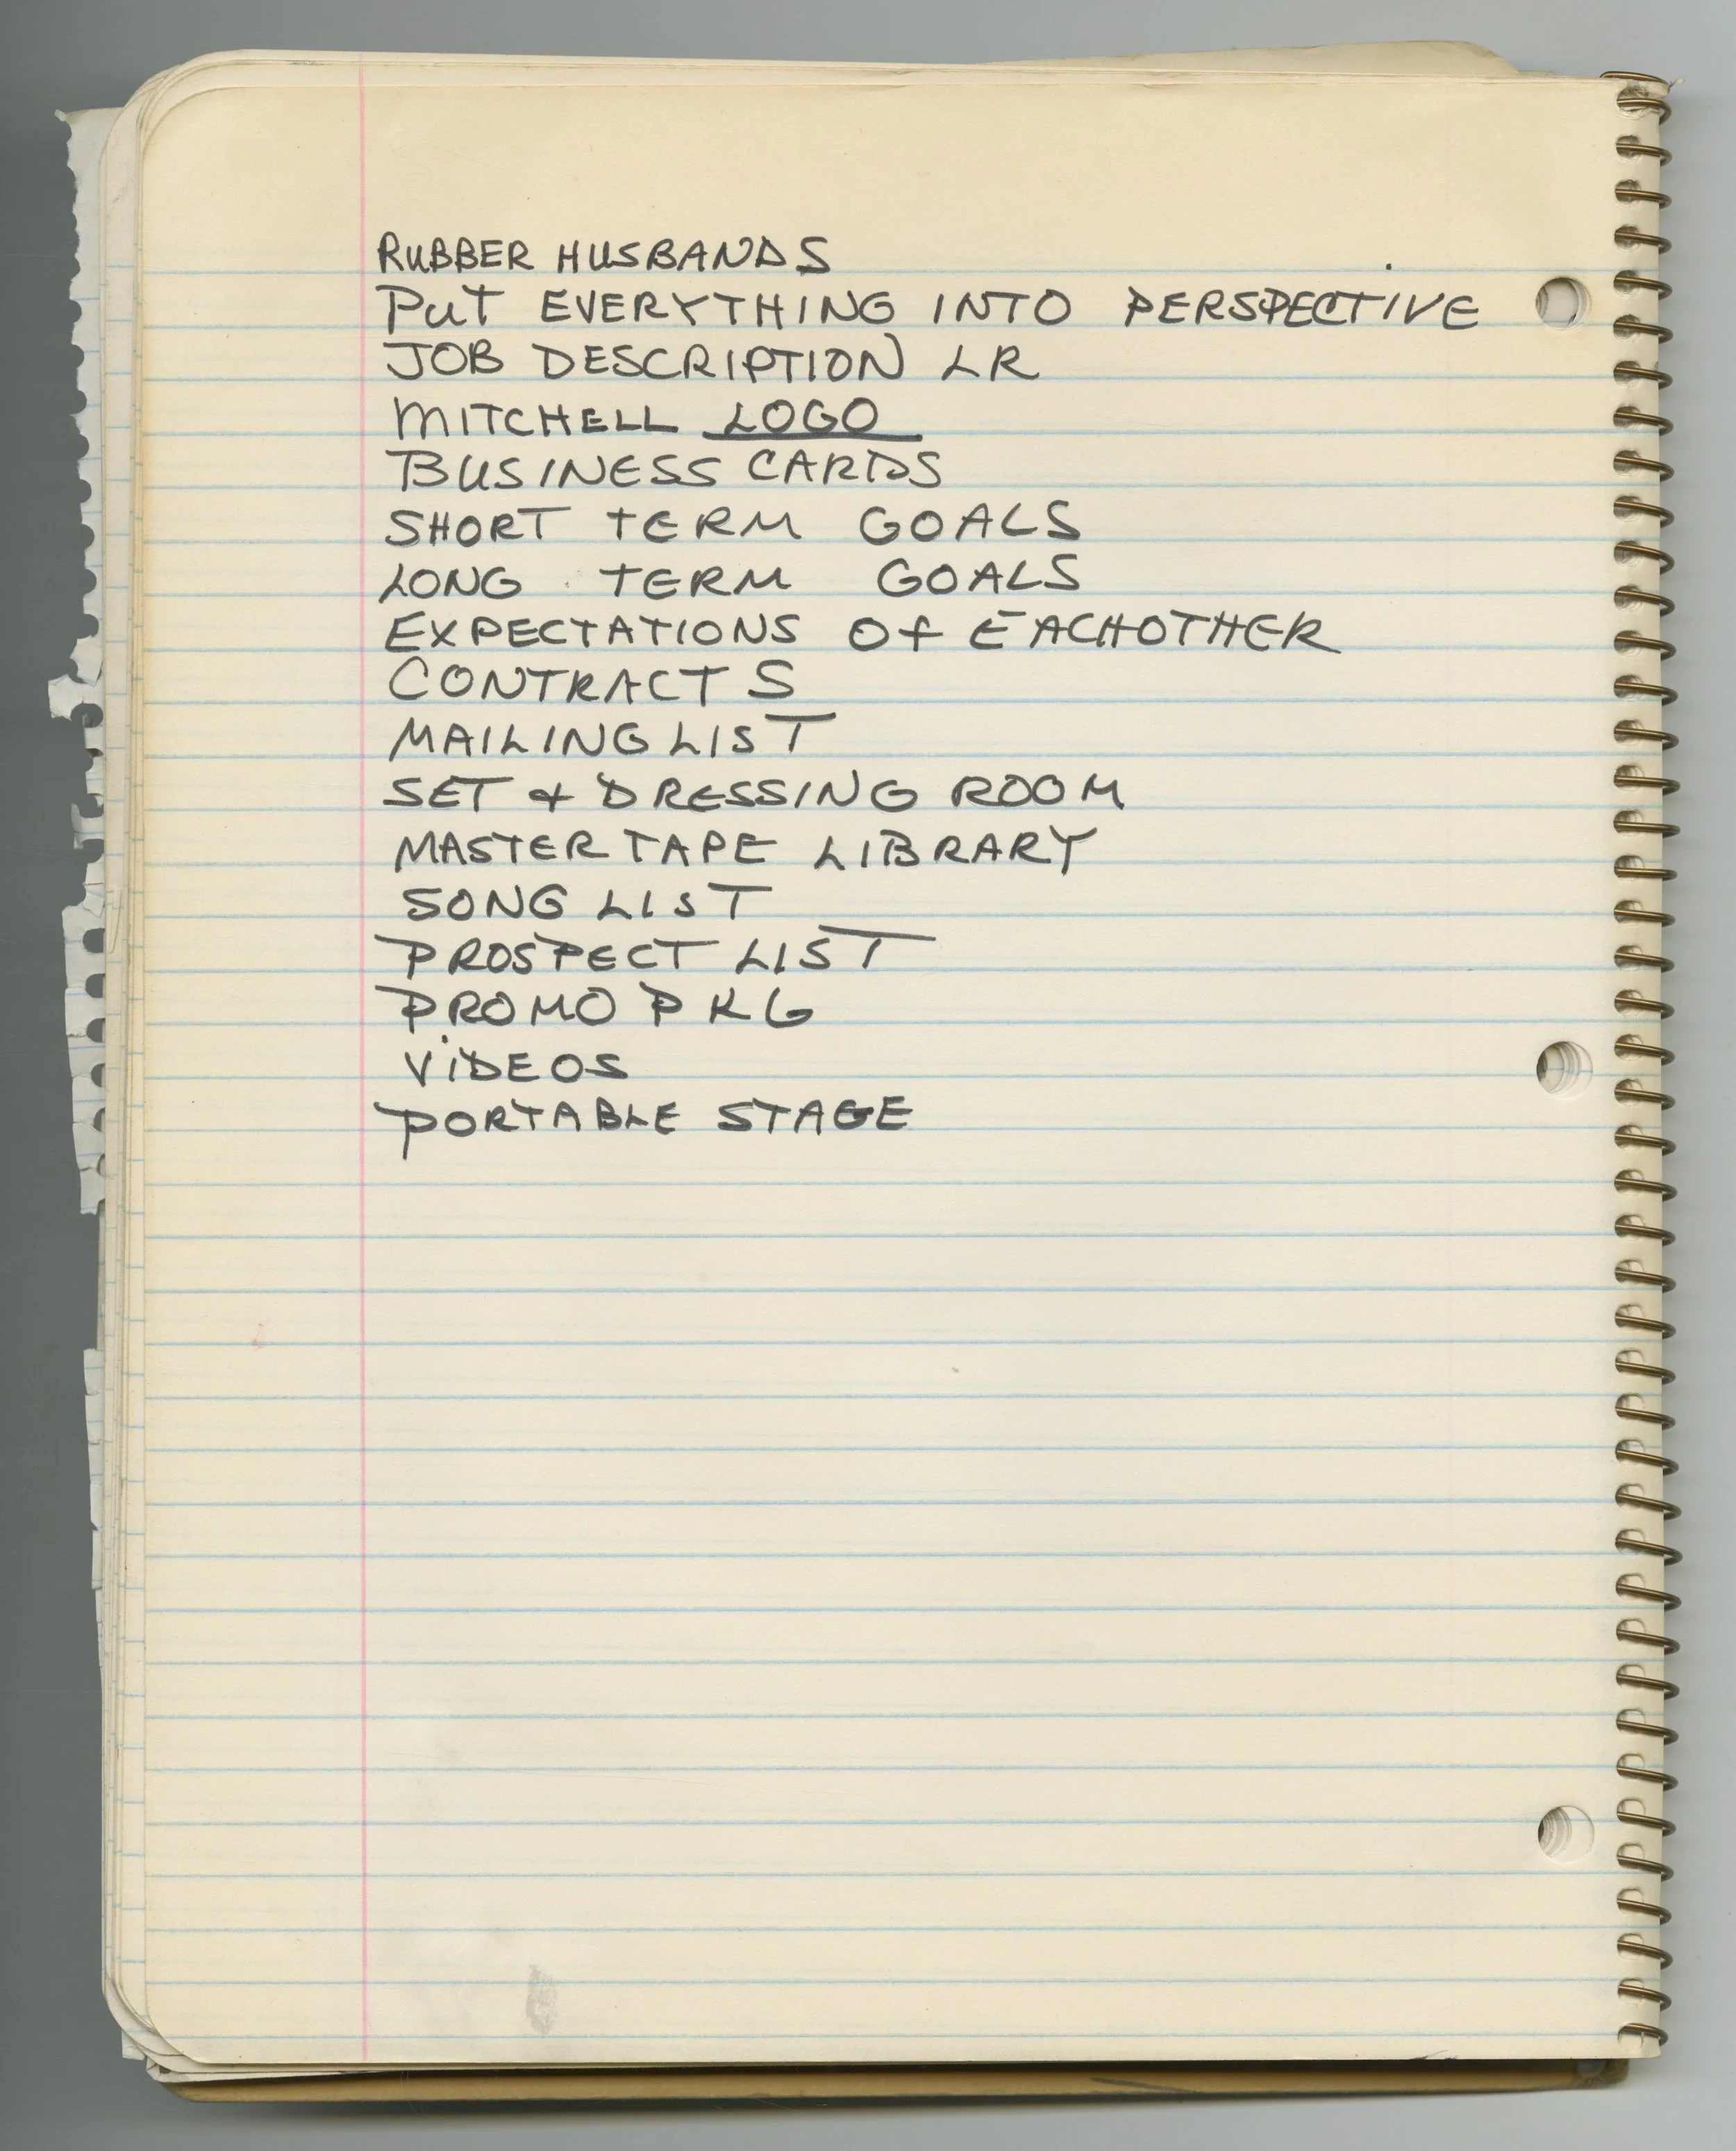 RUBBER HUSBANDS
PUT EVERYTHING INTO PERSPECTIVE
JOB DESCRIPTION LR
MITCHELL LOGO
BUSINESS CARDS
SHORT TERM GOALS
LONG TERM GOALS
EXPECTATIONS Of EACHOTHER
CONTRACTS
MAILING LIST
SET & DRESSING ROOM
MASTER TAPE LIBRARY
SONG LIST
PROSPECT LIST
PROMO PKG
ViDEOS
PORTABLE STAGE